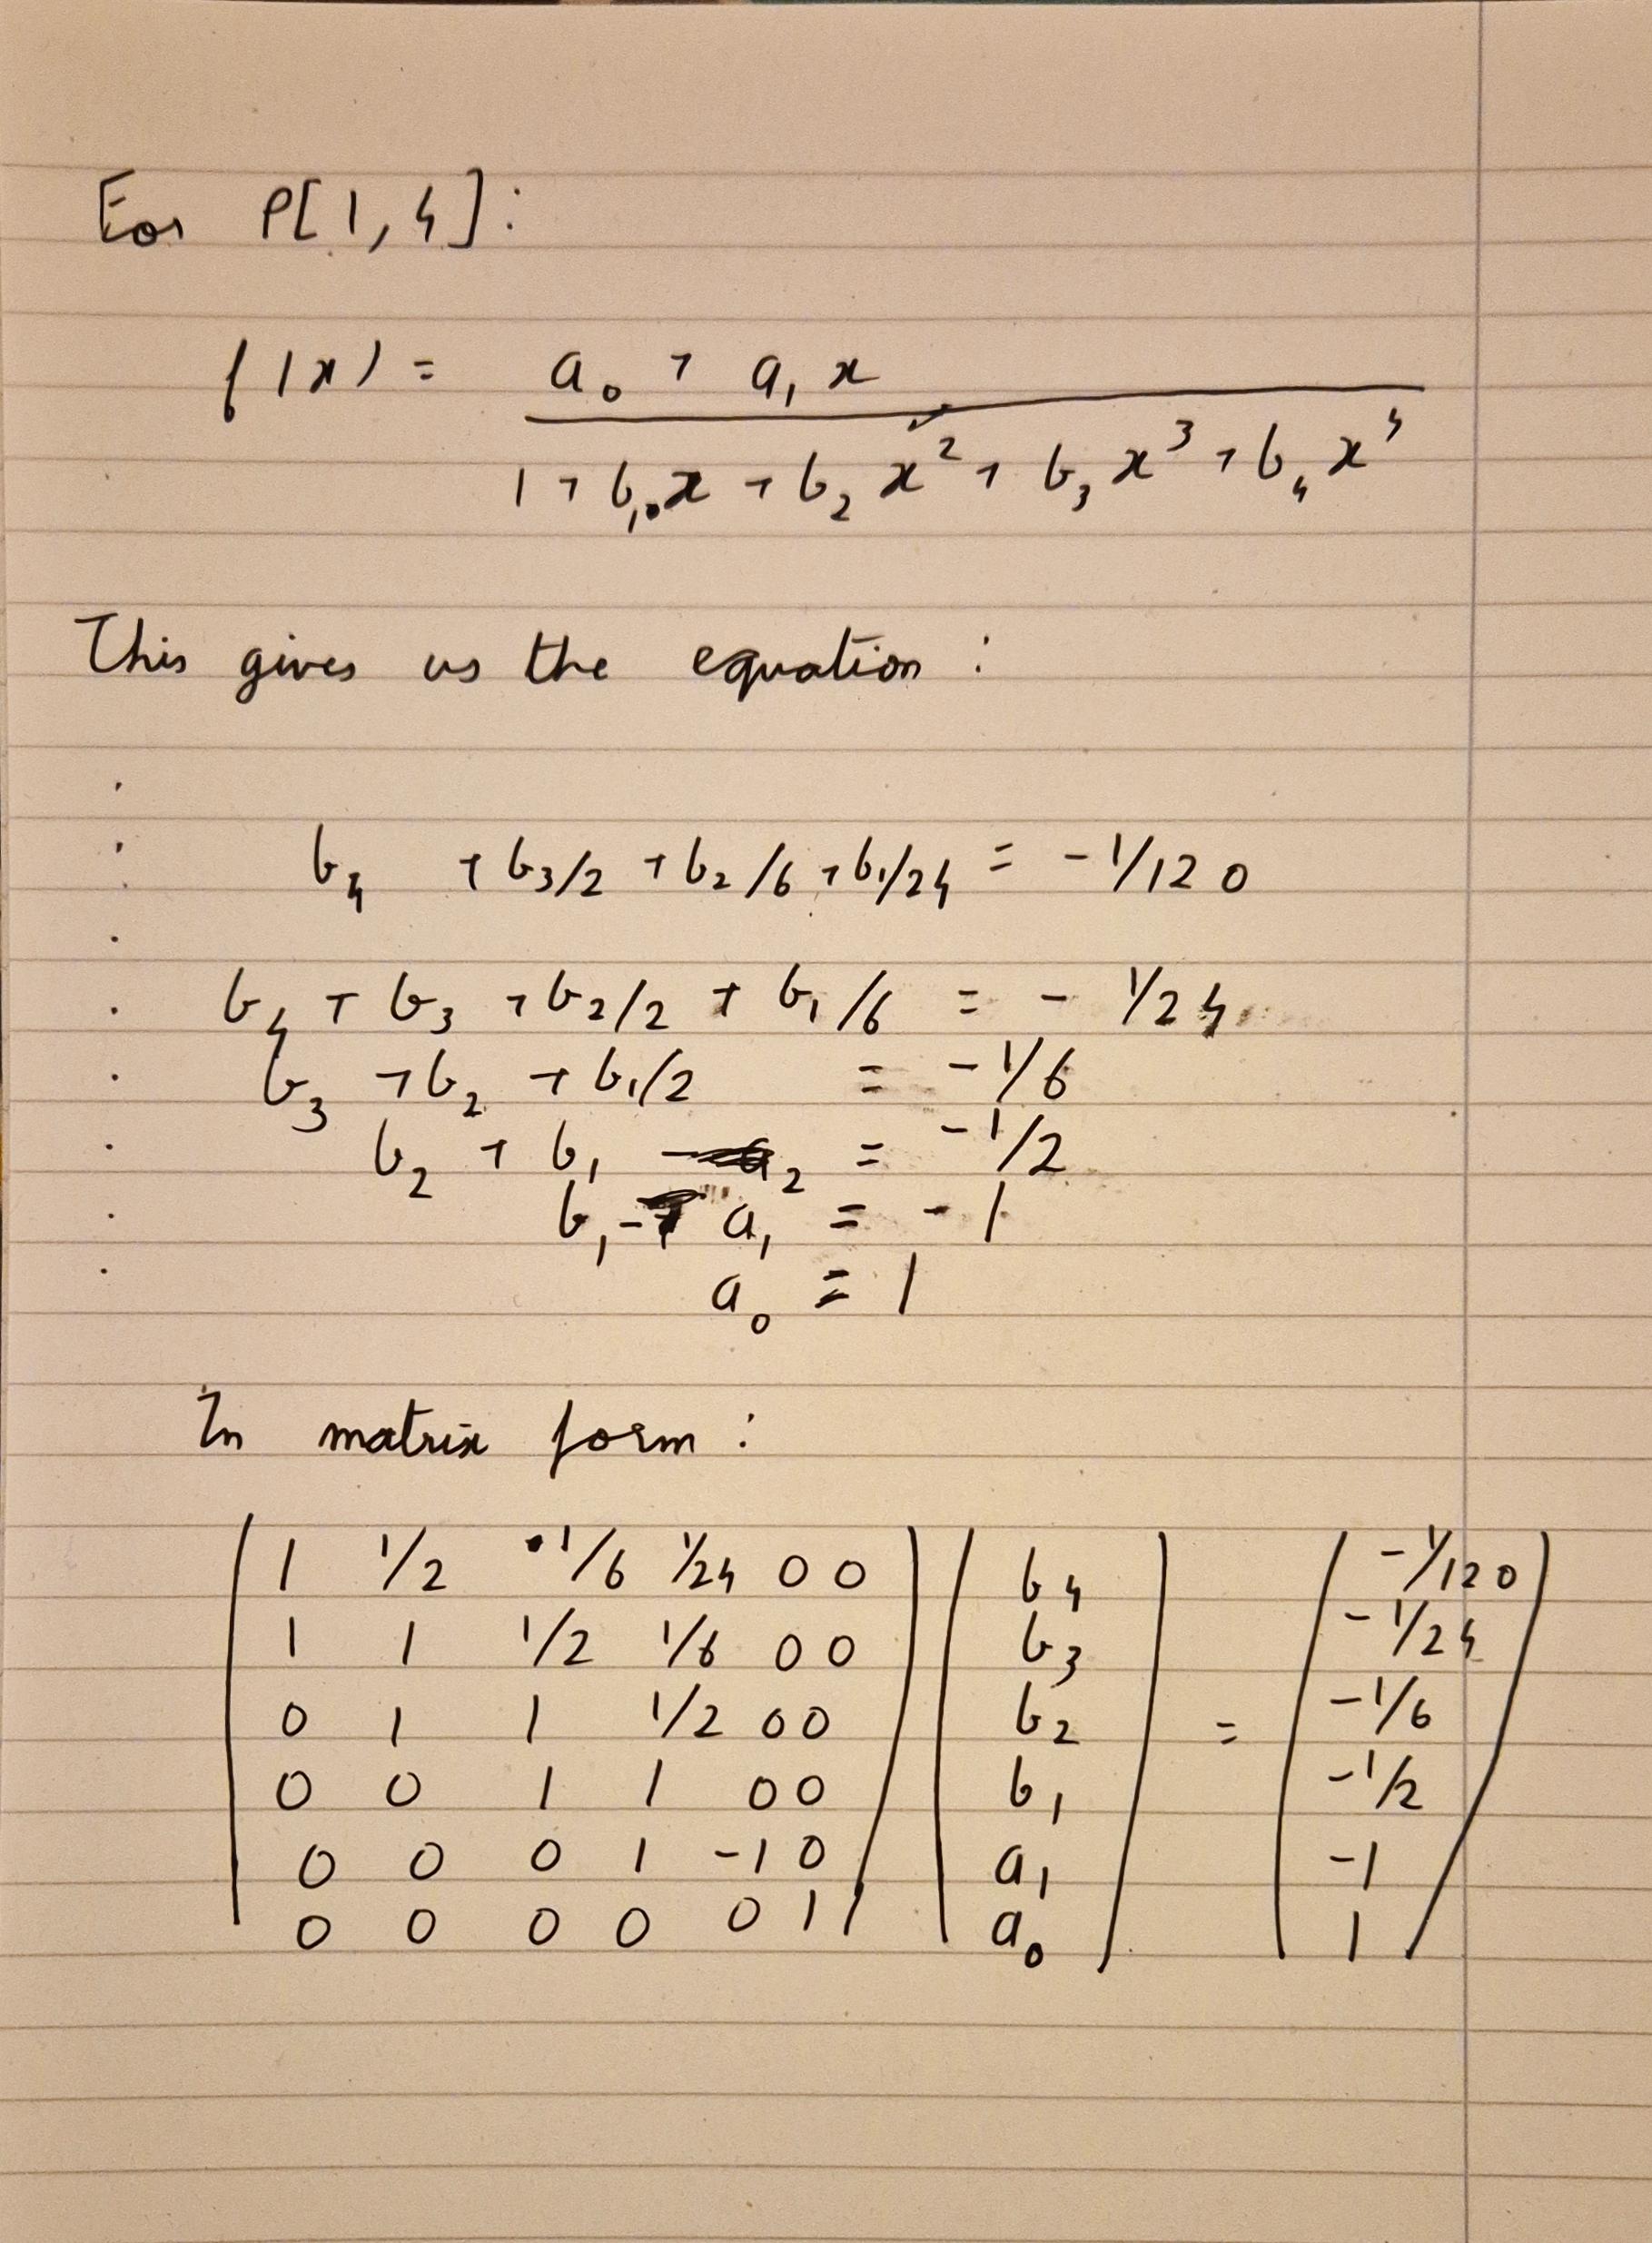 For P[1,4]:
f(x) = a₀ + a₁x
1 + b₁x + b₂x² + b₃x³ + b₄x⁴
This gives us the equation :
b₄ + b₃/2 + b₂/6 + b₁/24 = -1/120
b₄ + b₃ + b₂/2 + b₁/6 = - 1/24
b₃ + b₂ + b₁/2 = -1/6
b₂ + b₁ = -1/2
b₁ - a₁ = -1
a₀ = 1
In matrix form :
1 1/2 1/6 1/24 0 0 b₄ -1/120
1 1 1/2 1/6 0 0 b₃ -1/24
0 1 1 1/2 0 0 b₂ = -1/6
0 0 1 1 0 0 b₁ -1/2
0 0 0 1 -1 0 a₁ -1
0 0 0 0 0 1 a₀ 1